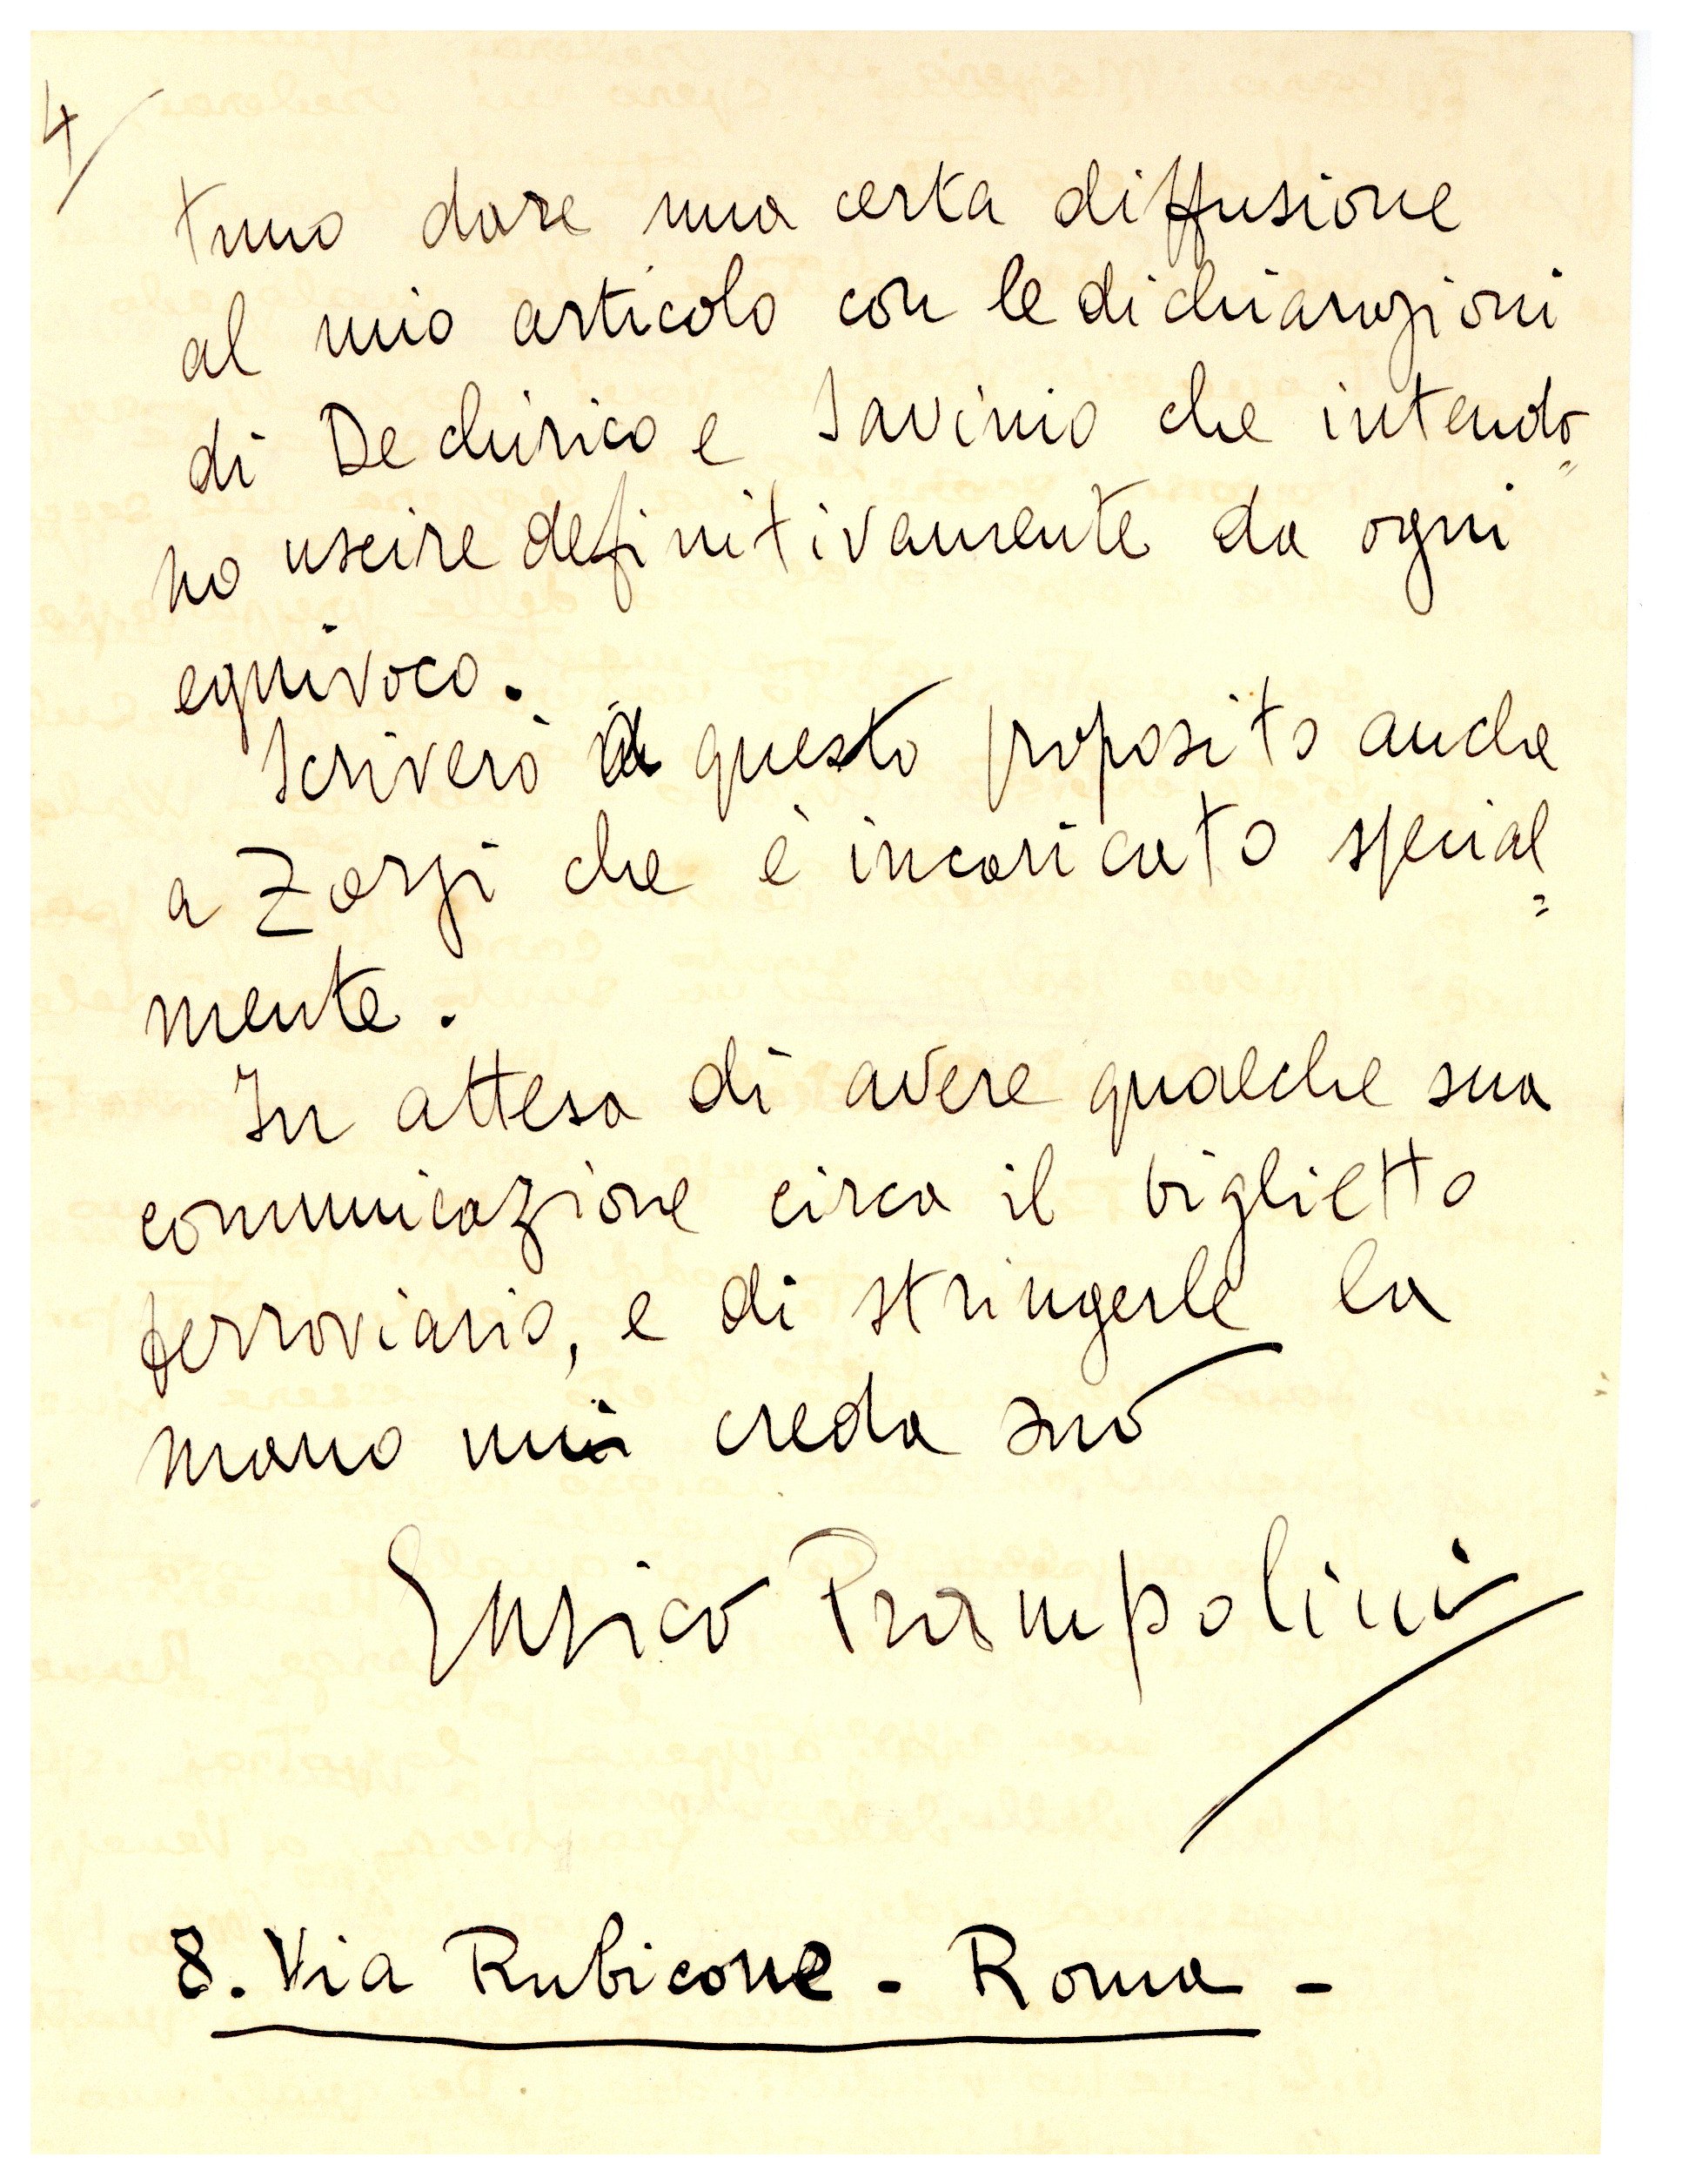 4/
tuno dare una certa diffusione
al mio articolo con le dichiarazioni
di De Chirico e Savinio che intendo=
no uscire definitivamente da ogni
equivoco.
Scriverò a questo proposito anche
a Zorzi che è incaricato special=
mente.
In attesa di avere qualche sua
comunicazione circa il biglietto
ferroviario, e di stringerle la
mano mi creda suo
Enrico Prampolini
8. Via Rubicone - Roma -